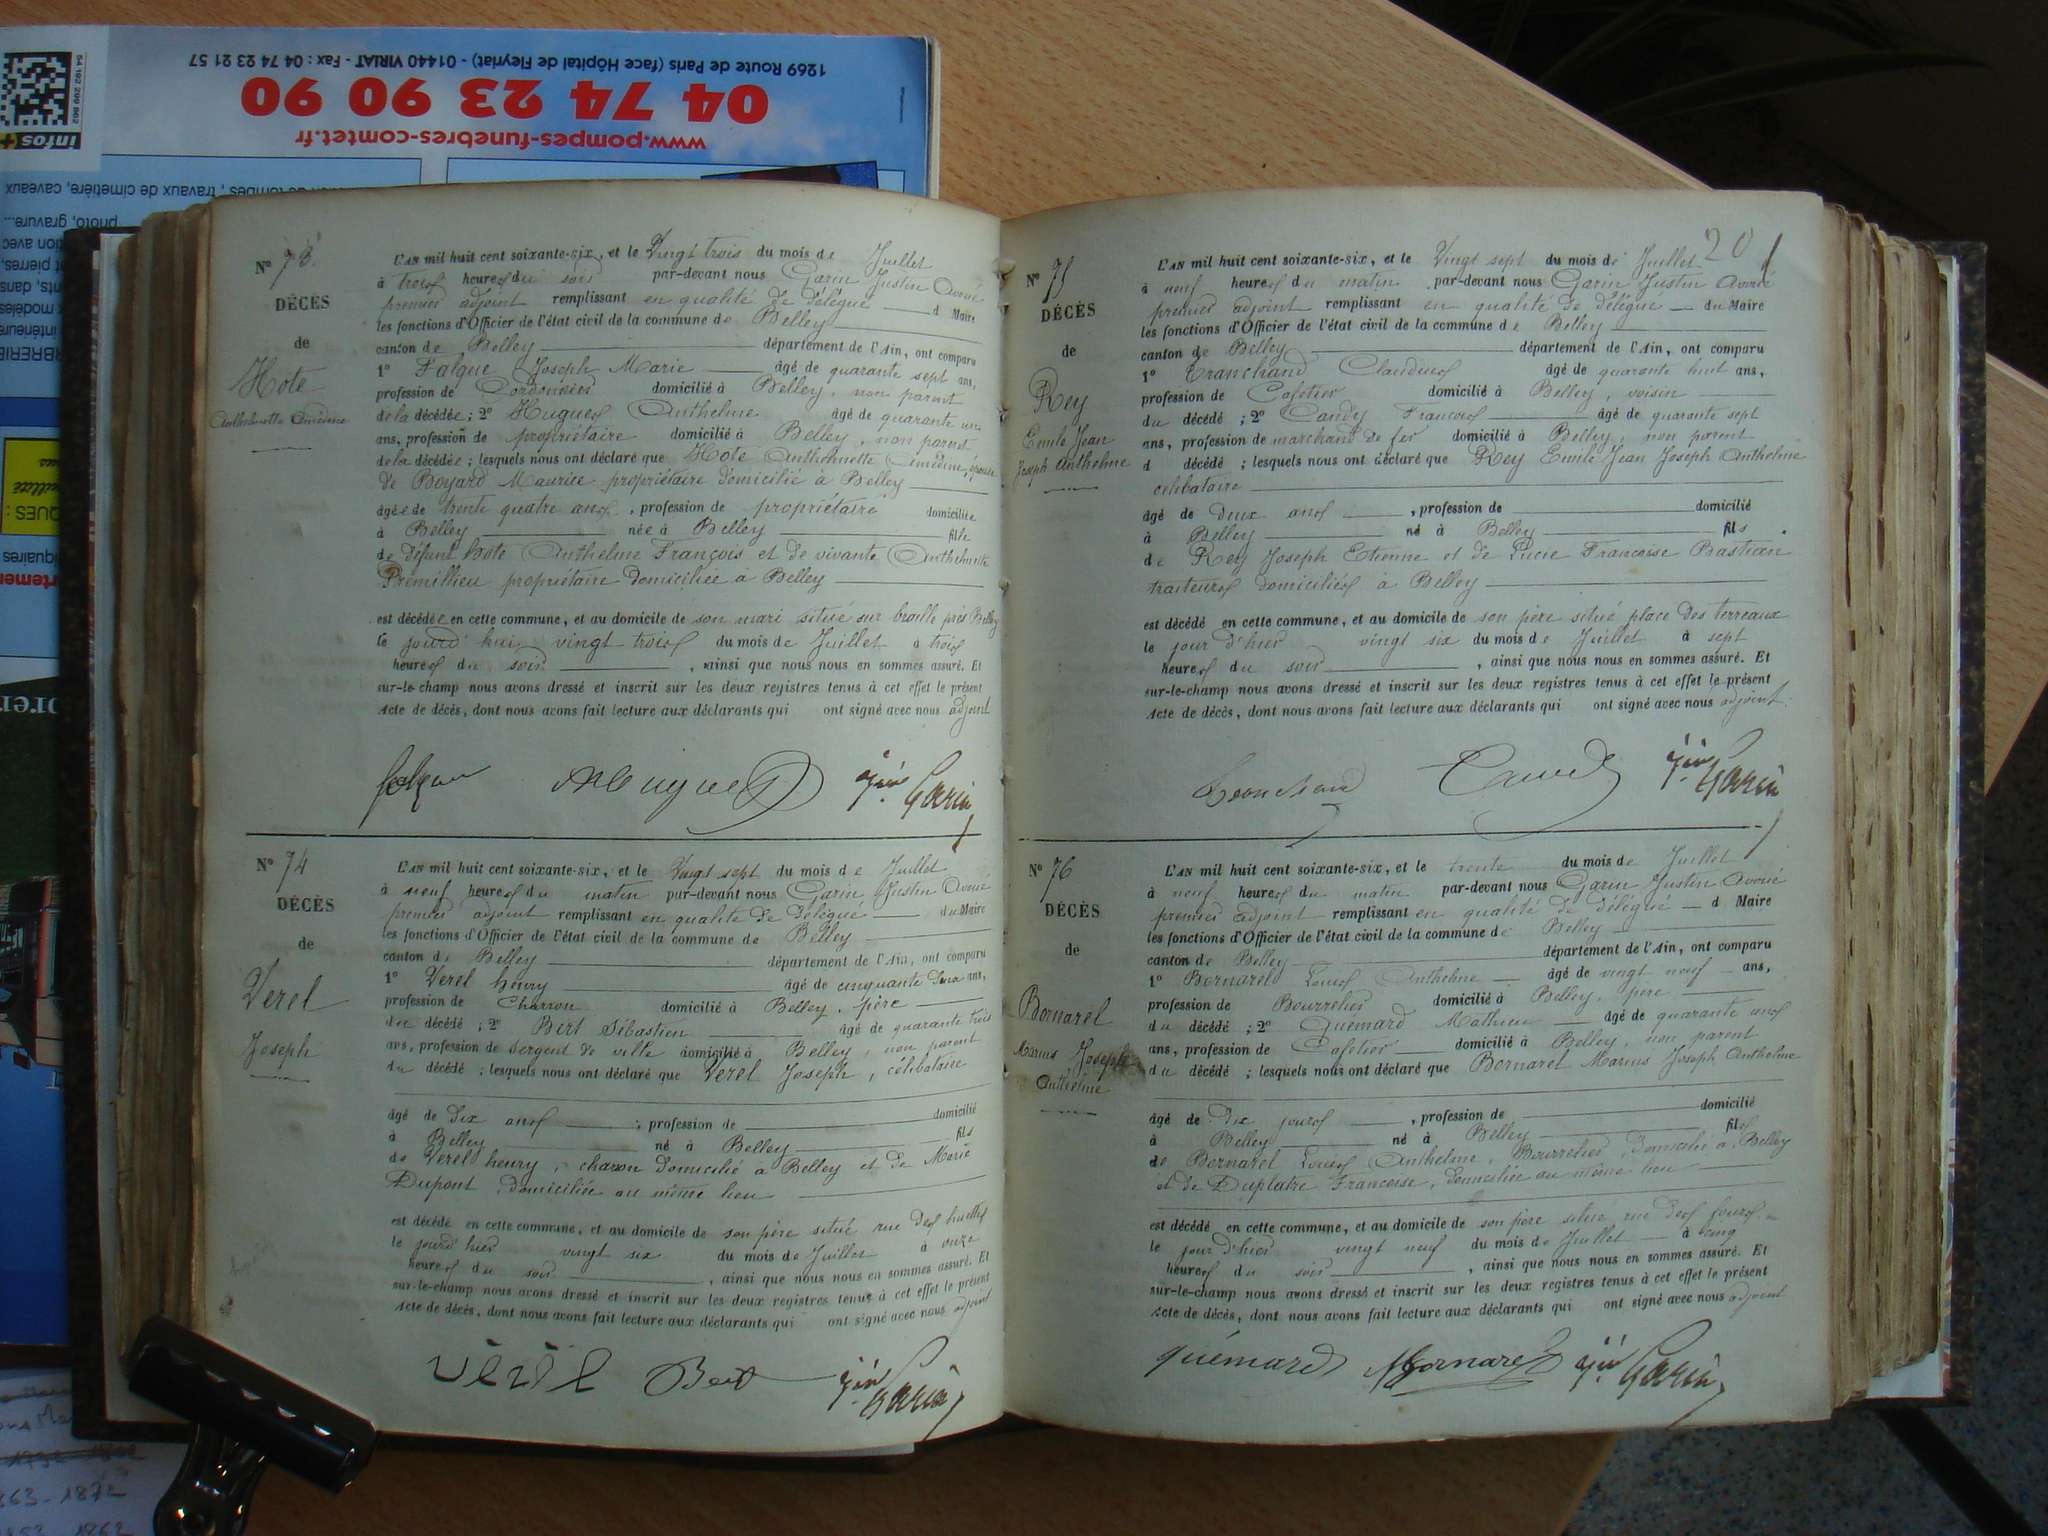 1269 Route de Paris (face Hôpital de Fleyriat) - 01440 VIRIAT - Fax : 04 74 23 21 57
04 74 23 90 90
www.pompes-funebres-comtet.fr
infos
travaux de cimetière, caveaux
photo, gravure...
N° 73
DÉCÈS
de
Hôte
Anthelmette Amédine
L'AN mil huit cent soixante-six, et le Vingt trois du mois de Juillet
à trois heures du soir par-devant nous Garin Justin Avoué
premier adjoint remplissant en qualité de délégué d Maire
les fonctions d'Officier de l'état civil de la commune de Belley
canton de Belley département de l'Ain, ont comparu
1° Falque Joseph Marie âgé de quarante sept ans,
profession de Cordonnier domicilié à Belley, non parent
de la décédée ; 2° Hugues Anthelme âgé de quarante un
ans, profession de propriétaire domicilié à Belley, non parent
de la décédée ; lesquels nous ont déclaré que Hote Anthelmette Amédine, épouse
de Boyard Maurice propriétaire domicilié à Belley
âgée de trente quatre ans, profession de propriétaire domiciliée
à Belley née à Belley fille
de défunt hôte Anthelme François et de vivante Anthelmette
Prémillieu propriétaire domiciliée à Belley
est décédée en cette commune, et au domicile de son mari situé sur braille près Belley
le jourd'hui vingt trois du mois de Juillet à trois
heures du soir, ainsi que nous nous en sommes assuré. Et
sur-le-champ nous avons dressé et inscrit sur les deux registres tenus à cet effet le présent
acte de décès, dont nous avons fait lecture aux déclarants qui ont signé avec nous adjoint
Hugues
Jin Garin
N° 74
DÉCÈS
de
Verel
Joseph
L'AN mil huit cent soixante-six, et le Vingt sept du mois de Juillet
à neuf heures du matin par-devant nous Garin Justin Avoué
premier adjoint remplissant en qualité de délégué du Maire
les fonctions d'Officier de l'état civil de la commune de Belley
canton de Belley département de l'Ain, ont comparu
1° Verel henry âgé de cinquante deux ans,
profession de Charron domicilié à Belley, père
du décédé ; 2° Bert Sébastien âgé de quarante trois
ans, profession de Sergent de ville domicilié à Belley, non parent
du décédé ; lesquels nous ont déclaré que Verel Joseph, célibataire
âgé de dix ans, profession de domicilié
à Belley né à Belley fils
de Verel henry, charon domicilié à Belley et de Marie
Dupont, domiciliée au même lieu
est décédé en cette commune, et au domicile de son père situé rue des
le jourd'hier vingt six du mois de Juillet à onze
heures du soir, ainsi que nous nous en sommes assuré. Et
sur-le-champ nous avons dressé et inscrit sur les deux registres tenus à cet effet le présent
acte de décès, dont nous avons fait lecture aux déclarants qui ont signé avec nous adjoint
Vérél Bert Jin Garin
20
N° 75
DÉCÈS
de
Rey
Emile Jean
Joseph Anthelme
L'AN mil huit cent soixante-six, et le Vingt sept du mois de Juillet
à neuf heures du matin par-devant nous Garin Justin Avoué
premier adjoint remplissant en qualité de délégué du Maire
les fonctions d'Officier de l'état civil de la commune de Belley
canton de Belley département de l'Ain, ont comparu
1° Tranchand Claudius âgé de quarante huit ans,
profession de Cafetier domicilié à Belley, voisin
du décédé ; 2° Candy François âgé de quarante sept
ans, profession de marchand de fer domicilié à Belley, non parent
d décédé ; lesquels nous ont déclaré que Rey Emile Jean Joseph Anthelme
célibataire
âgé de deux ans, profession de domicilié
à Belley né à Belley fils
de Rey Joseph Etienne et de Lucie Françoise Bastian
traiteurs domiciliés à Belley
est décédé en cette commune, et au domicile de son père situé place des terreaux
le jour d'hier vingt six du mois de Juillet à sept
heures du soir, ainsi que nous nous en sommes assuré. Et
sur-le-champ nous avons dressé et inscrit sur les deux registres tenus à cet effet le présent
acte de décès, dont nous avons fait lecture aux déclarants qui ont signé avec nous adjoint
Tranchand Candy Jin Garin
N° 76
DÉCÈS
de
Bornarel
Marius Joseph
Anthelme
L'AN mil huit cent soixante-six, et le trente du mois de Juillet
à neuf heures du matin par-devant nous Garin Justin Avoué
premier adjoint remplissant en qualité de délégué d Maire
les fonctions d'Officier de l'état civil de la commune de Belley
canton de Belley département de l'Ain, ont comparu
1° Bornarel Louis Anthelme âgé de vingt neuf ans,
profession de Bourrelier domicilié à Belley, père
du décédé ; 2° Quemard Mathieu âgé de quarante ans
ans, profession de Cafetier domicilié à Belley, non parent
du décédé ; lesquels nous ont déclaré que Bornarel Marius Joseph Anthelme
âgé de dix jours, profession de domicilié
à Belley né à Belley fils
de Bornarel Louis Anthelme, Bourrelier, domicilié à Belley
et de Duplatre Françoise, domiciliée au même lieu
est décédé en cette commune, et au domicile de son père situé rue des fours
le jour d'hier vingt neuf du mois de Juillet à cinq
heures du soir, ainsi que nous nous en sommes assuré. Et
sur-le-champ nous avons dressé et inscrit sur les deux registres tenus à cet effet le présent
acte de décès, dont nous avons fait lecture aux déclarants qui ont signé avec nous adjoint
quémard Bornarel Jin Garin